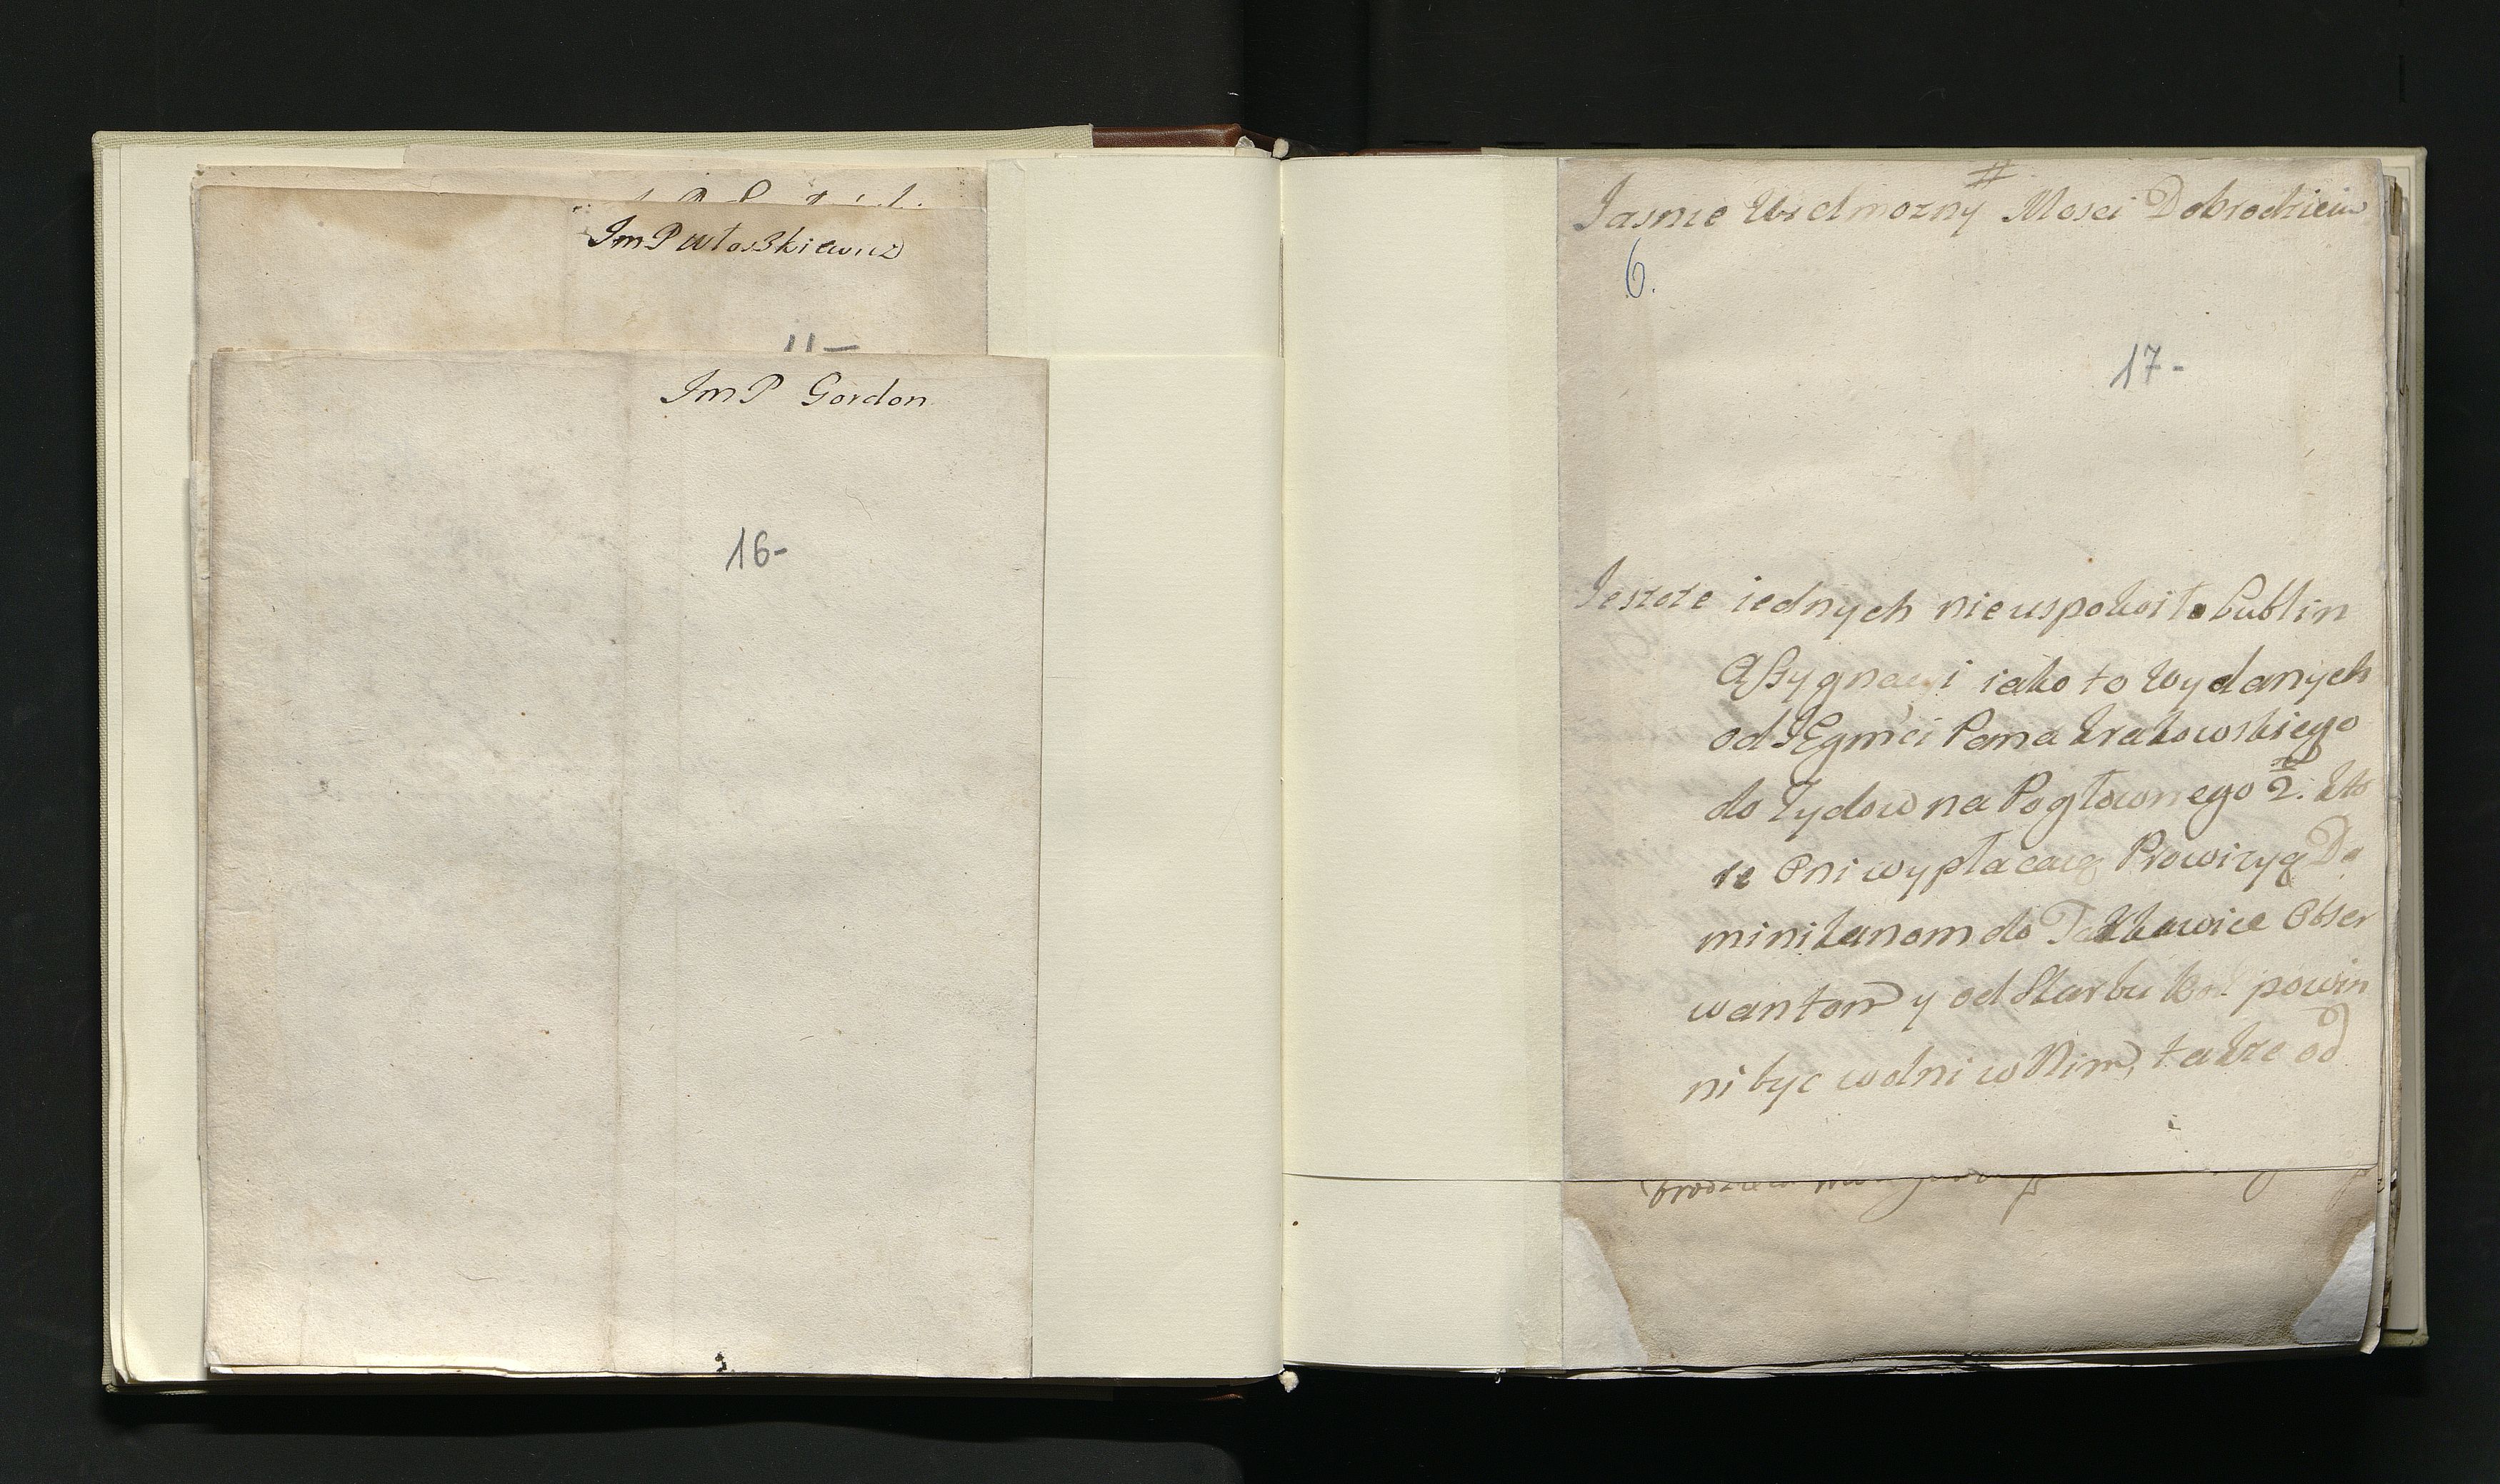 ImP Włoszkiewicz
11-
ImP Gordon
16-
#
Jasnie Wielmozny Mosci Dobrodzieiu
6.
17-
Jeszcze iednych nie uspokoił Lublin
Assygnacyi iako to wydanych
od JEgmći Pana Krakowskiego
do Zydow na Pogłownego 2. kto
re Oni wypłacaią Prowizyą Do
minikanom do Observ
wantow y od Skarbu Kor powin
ni byc wolni w Nim, także od